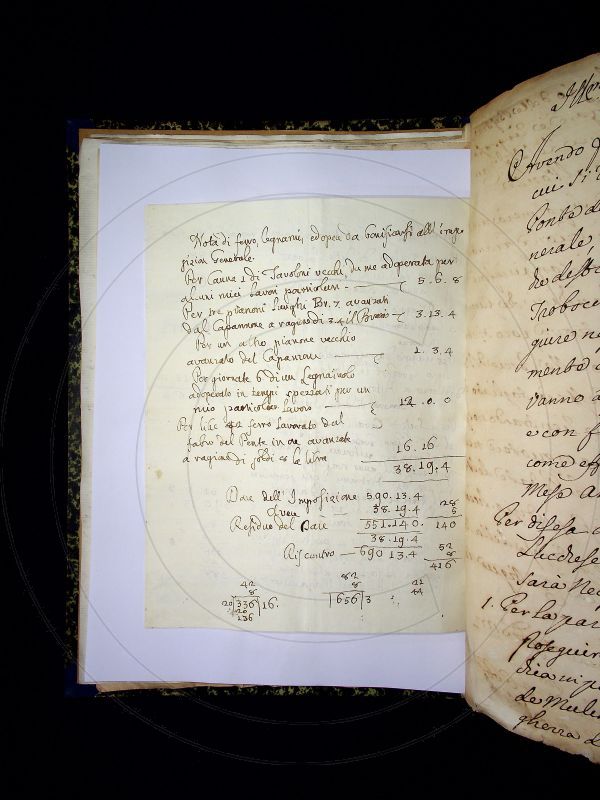 Nota di ferro, legnami, ed opea da bonificarsi all'impo
sizion Generale.
Per Canne 1 di Tavoloni vecchi, da me adoperata per
alcuni miei lavori particolari - 5. 6. 8
Per tre pianoni lunghi Br. 7. avanzati
dal Capannone a ragione di 3.4 il Braccio - 3. 13. 4
Per un altro pianone vecchio
avanzato del Capannone 1. 3. 4
Per giornate 6 di un Legnaiuolo
adoperato in tempi spezzati per un
mio particolar lavoro 12. 0. 0
Per libe ferro lavorato dal
fabro del Ponte in avanzate
a ragione di soldi la libra 16. 16
38. 19. 4
Dare dell'Imposizione 590. 13. 4
Avere - 38. 19. 4
Residuo del Dare 551. 14 0.
38. 19. 4
Riscontro — 690 13. 4
28
5
140
52
8
416
42
8
20 336 16.
20
136
82
8
656 3
21
44
Avendo
cui si
Ponte d
nerale,
Traboc
giure n
mente
vanno a
e con f
come eff
Mese A
Per difesa
Lucchese
Sarà Ne
1. Per la par
Proseguir
de Mulin